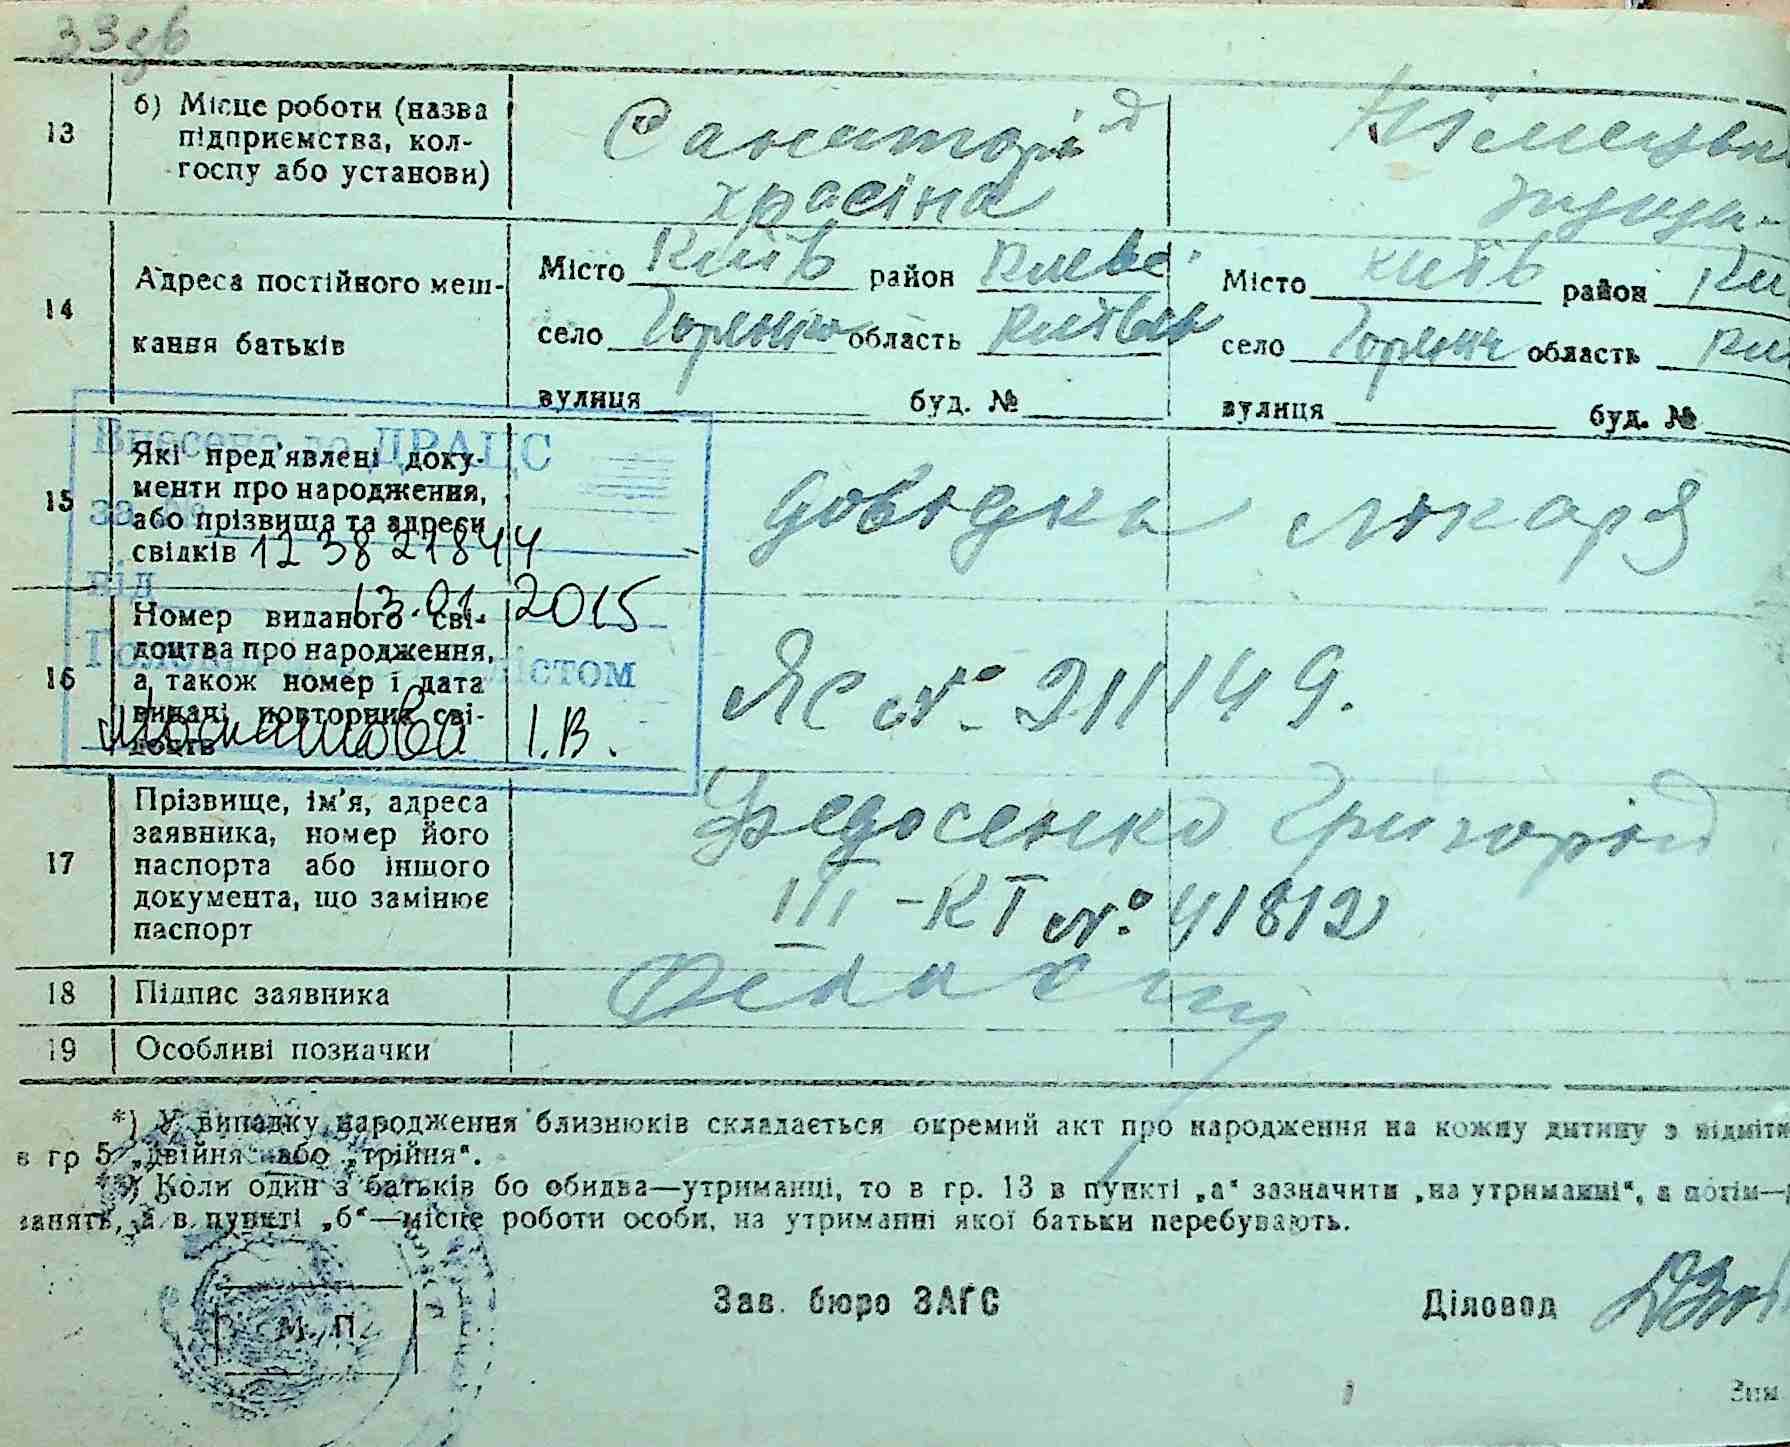 33зв
13
б) Місце роботи (назва
підприємства, кол-
госпу або установи)
Санаторія
красіна
14
Адреса постійного меш-
кання батьків
Місто Київ район Києвс.
село Горенка область Київсь
вулиця буд. №
Місто Київ район Ки
село Горенка область Ки
вулиця буд. №
Внесено до ДРАЦС
за №
12 38 21844
від
13.01 2015
I.В.
15
Які пред'явлені доку-
менти про народження,
або прізвища та адреси
свідків
довідка лікаря
16
Номер виданого сві-
доцтва про народження,
а також номер і дата
видачі повторних сві-
доцтв
ЯС № 211149.
17
Прізвище, ім'я, адреса
заявника, номер його
паспорта або іншого
документа, що замінює
паспорт
Федосенко Григорій
III-КТ № 41812
18
Підпис заявника
19
Особливі позначки
*) У випадку народження близнюків складається окремий акт про народження на кожну дитину з відміти
в гр 5 „двійня“ або „трійня“.
**) Коли один з батьків бо обидва—утриманці, то в гр. 13 в пункті „а“ зазначити „на утриманні“, а потім—
занять, а в пункті „б“—місце роботи особи, на утриманні якої батьки перебувають.
М. П.
Зав. бюро ЗАГС
Діловод